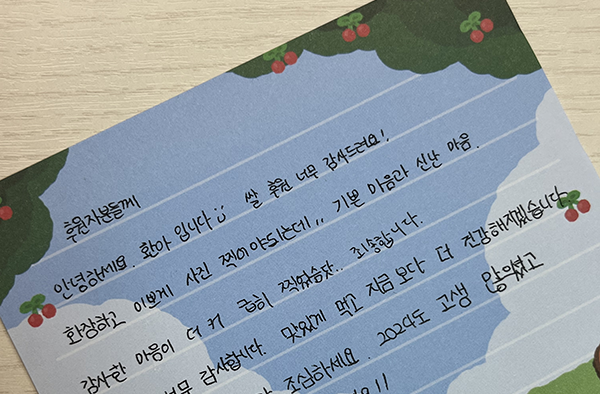 후원자분들께
안녕하세요. 환아 입니다 :) 쌀 후원 너무 감사드려요!
화장하고 이쁘게 사진 찍어야되는데,, 기쁜 마음과 신난 마음.
감사한 마음이 더 커 급히 찍었습니다.. 죄송합니다.
너무 감사합니다. 맛있게 먹고 지금보다 더 건강해지겠습니다
조심하세요. 2024도 고생 많으셨고